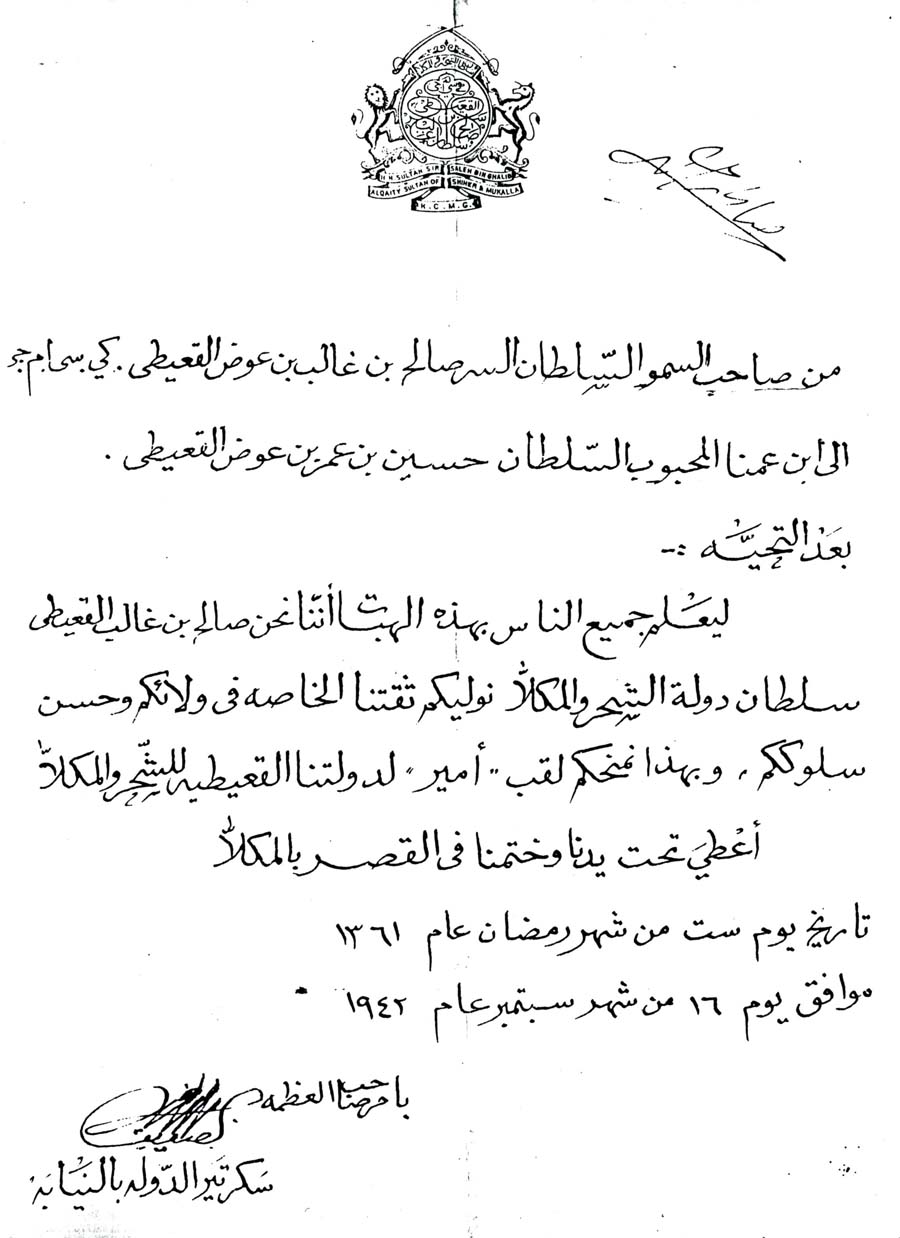 H.H. SULTAN SIR SALEH BIN GHALIB
ALQAITY SULTAN OF SHIHER & MUKALLA
K.C.M.G.
من صاحب السمو السّلطان السر صالح بن غالب بن عوض القعيطى . كي سى ام جى
الى ابن عمنا المحبوب السّلطان حسين بن عمر بن عوض القعيطى .
بعَدْ التحيَّه :-
ليعْلم جميع الناس بهذه الهبات أننا نحن صالح بن غالب القعيطى
سلطان دولة الشحر والمكلاّ نوليكم ثقتنا الخاصه فى ولائكم وحسن
سلوككم ، وبهذا نمنحكم لقب "أمير" لدولتنا القعيطيه للشّحر والمكلاّ
أعْطيَ تحت يدنا وختمنا فى القصر بالمكلاّ
تاريخ يوم ست من شهر رمضان عام ١٣٦١
موافق يوم ١٦ من شهر سبتمبر عام ١٩٤٢
بامر صاحب العظمه
سَكرتَير الدّوله بالنيْابَة